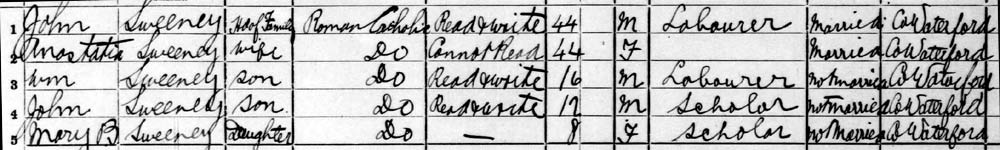 1 John Sweeney H of Family Roman Catholic Read & write 44 M Labourer Married Co Waterford
2 Anastatia Sweeney Wife Do Cannot Read 44 F Married Co Waterford
3 Wm Sweeney Son Do Read & write 16 M Labourer not married Co Waterford
4 John Sweeney Son Do Read & write 12 M Scholar not married Co Waterford
5 Mary B Sweeney Daughter Do — 8 F Scholar not Married Co Waterford